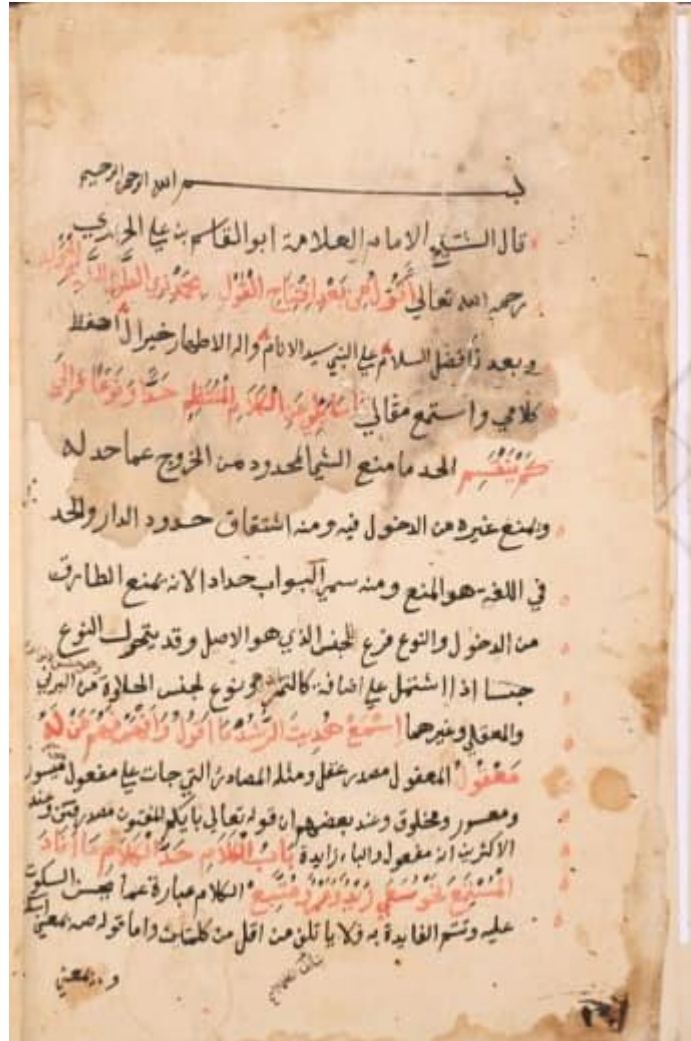 بسم الله الرحمن الرحيم
قال الشيخ الامام العلامة ابو القاسم بن علي الحريري
رحمه الله تعالي أَقُولُ مِن بَعْدِ افْتِتَاحِ الْقَوْلِ بِحَمْدِ ذِي الطول الشديد الحول
وبعد فأفضل السلام علي النبي سيد الانام واله الاطهار خير ال احفظ
كلامي واستمع مقالي يا سايلي عن الكلام المنتظم حدا ونوعا والى
كم ينقسم الحد ما منع الشي المحدود من الخروج عما حد له
ويمنع غيره من الدخول فيه ومنه اشتقاق حدود الدار والحد
في اللغة هو المنع ومنه سمي البواب حدادا لانه يمنع الطارق
من الدخول والنوع فرع للجنس الذي هو الاصل وقد يتحول النوع
جنسا اذا اشتمل علي اضافة كالتمر هو نوع لجنس الحلاوة من البرني
والمعقلي وغيرهما اسمع هديت الرشد ما اقول وافهمه فهم من له
معقول المعقول مصدر عقل ومثله المصادر التي جات علي مفعول ميسور
ومعسور ومخلوق وعند بعضهم ان قوله تعالي بايكم المفتون مصدر فتن وعند
الاكثرين انه مفعول والباء زايدة باب الكلام حد الكلام ما افاد
المستمع نحو سعي زيد وعمرو متبع الكلام عبارة عما يحسن السكوت
عليه وتتم الفايدة به ولا ياتلف من اقل من كلمتين واما قوله صه بمعني اسكت
و مه بمعني